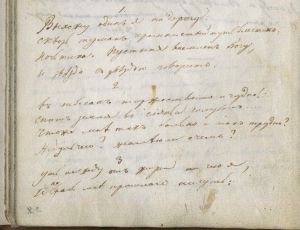 1
Выхожу одинъ я на дорогу;
Сквозь туманъ кремнистый путь блеститъ;
Ночь тиха. Пустыня внемлетъ богу,
И звѣзда съ звѣздою говоритъ.
2
Въ небесахъ торжественно и чудно!
Спитъ земля въ сіяньи голубомъ...
Что же мнѣ такъ больно и такъ трудно?
Жду ль чего? жалѣю ли о чемъ?
3
Ужъ не жду отъ жизни ничего я,
И не жаль мнѣ прошлаго ничуть;